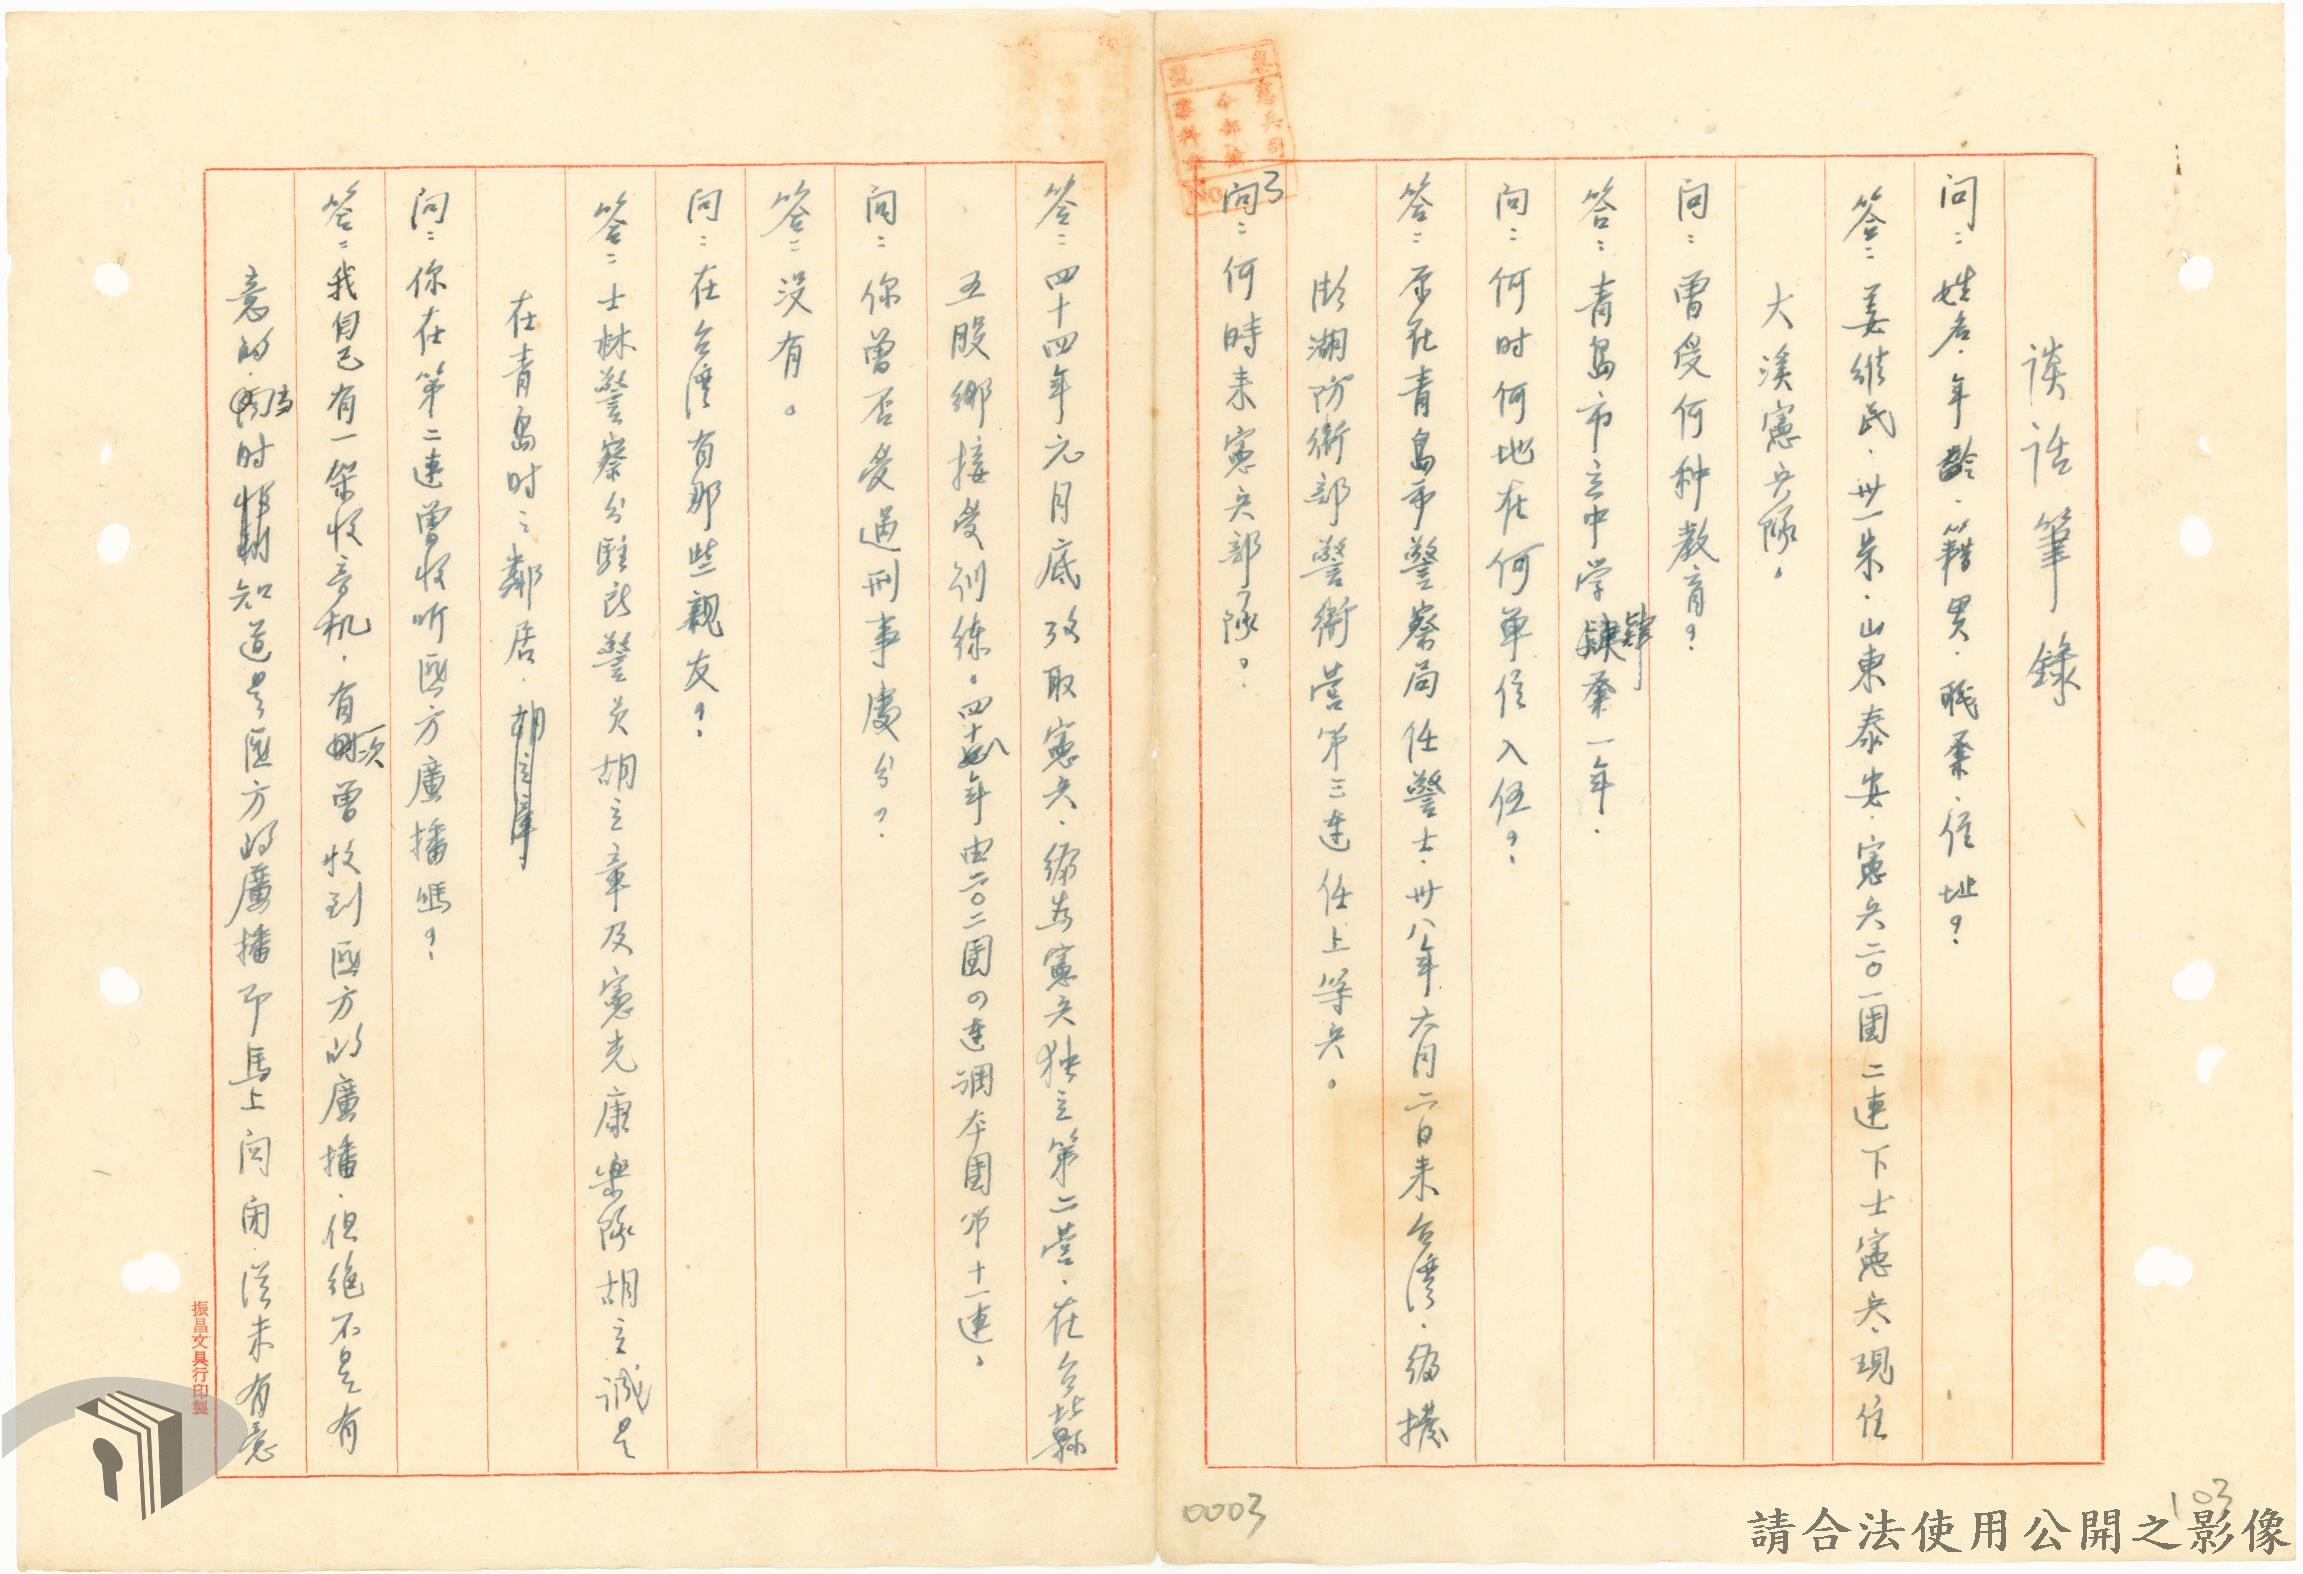 談話筆錄
问：姓名．年齡．籍貫．職業．住址？
答：姜維民．卅一岁．山東泰安．憲兵二〇一團二連下士憲兵．現住
大溪憲兵隊。
问：曾受何种教育？
答：青島市立中学肄業一年．
问：何时何地在何單位入伍？
答：原在青島市警察局任警士．卅八年六月二日来台湾．編撥
澎湖防衛部警衛營第三連任上等兵。
问：何時来憲兵部隊。
答：四十四年元月底攷取憲兵．編為憲兵独立第二營．在台北縣
五股鄉接受训练。四十八年由二〇二團の連調本團第十一連。
问：你曾否受過刑事處分？
答：没有。
问：在台灣有那些親友？
答：士林警察分駐所警员胡立章及憲光康樂隊胡立诚是
在青島时之鄰居．
问：你在第二連曾收听匪方廣播嗎？
答：我自己有一架收音机．有一次曾收到匪方的廣播．但絕不是有
意的．当时知道是匪方的廣播即馬上関闭．從未有意
振昌文具行印製
憲兵司
令部
No
3
0003
103
請合法使用公開之影像